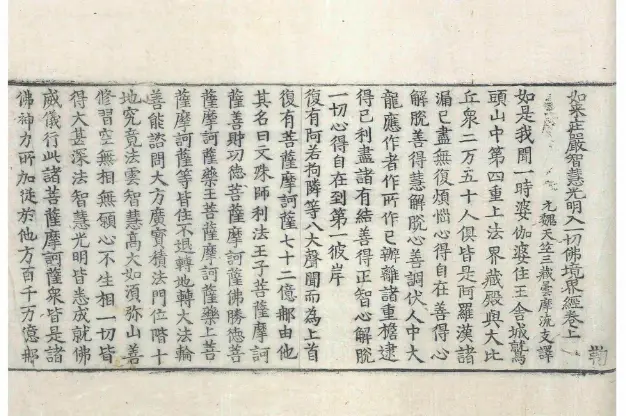 如來莊嚴智慧光明入一切佛境界經卷上
元魏天竺三藏曇摩流支譯
如是我聞一時婆伽婆住王舍城鷲
頭山中第四重上法界藏殿與大比
丘眾二万五千人俱皆是阿羅漢諸
漏已盡無復煩惱心得自在善得心
解脫善得慧解脫心善調伏人中大
龍應作者作所作已辦離諸重擔逮
得已利盡諸有結善得正智心解脫
一切心得自在到第一彼岸
復有阿若拘隣等八大聲聞而為上首
復有菩薩摩訶薩七十二億那由他
其名曰文殊師利法王子菩薩摩訶
薩善財功德菩薩摩訶薩佛勝德菩
薩摩訶薩藥王菩薩摩訶薩藥上菩
薩摩訶薩等皆住不退轉地轉大法輪
善能諮問大方廣寶積法門位階十
地究竟法雲智慧高大如須弥山善
修習空無相無願心不生相一切皆
得大甚深法智慧光明皆悉成就佛
威儀行此諸菩薩摩訶薩眾皆是諸
佛神力所加從於他方百千万億那